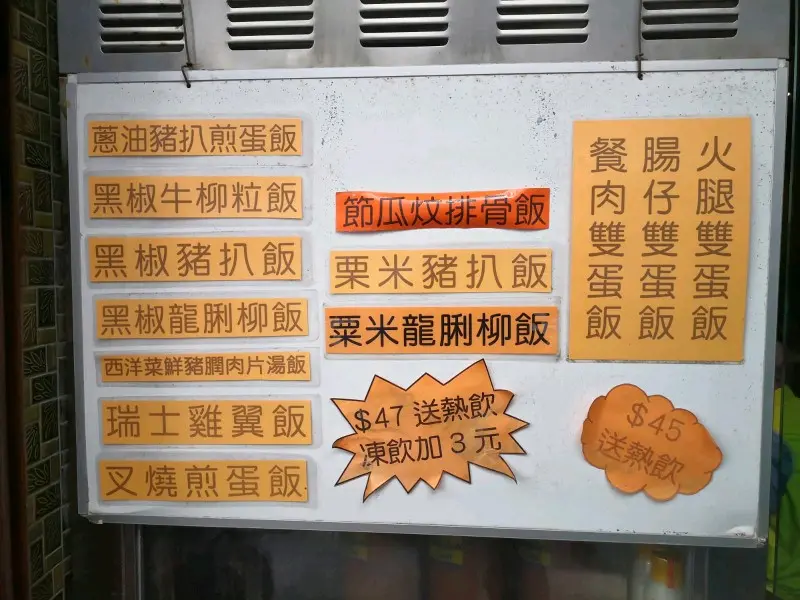 蔥油豬扒煎蛋飯
黑椒牛柳粒飯
黑椒豬扒飯
黑椒龍脷柳飯
西洋菜鮮豬膶肉片湯飯
瑞士雞翼飯
叉燒煎蛋飯
節瓜炆排骨飯
栗米豬扒飯
粟米龍脷柳飯
$47 送熱飲
凍飲加3元
火腿雙蛋飯
腸仔雙蛋飯
餐肉雙蛋飯
$45
送熱飲